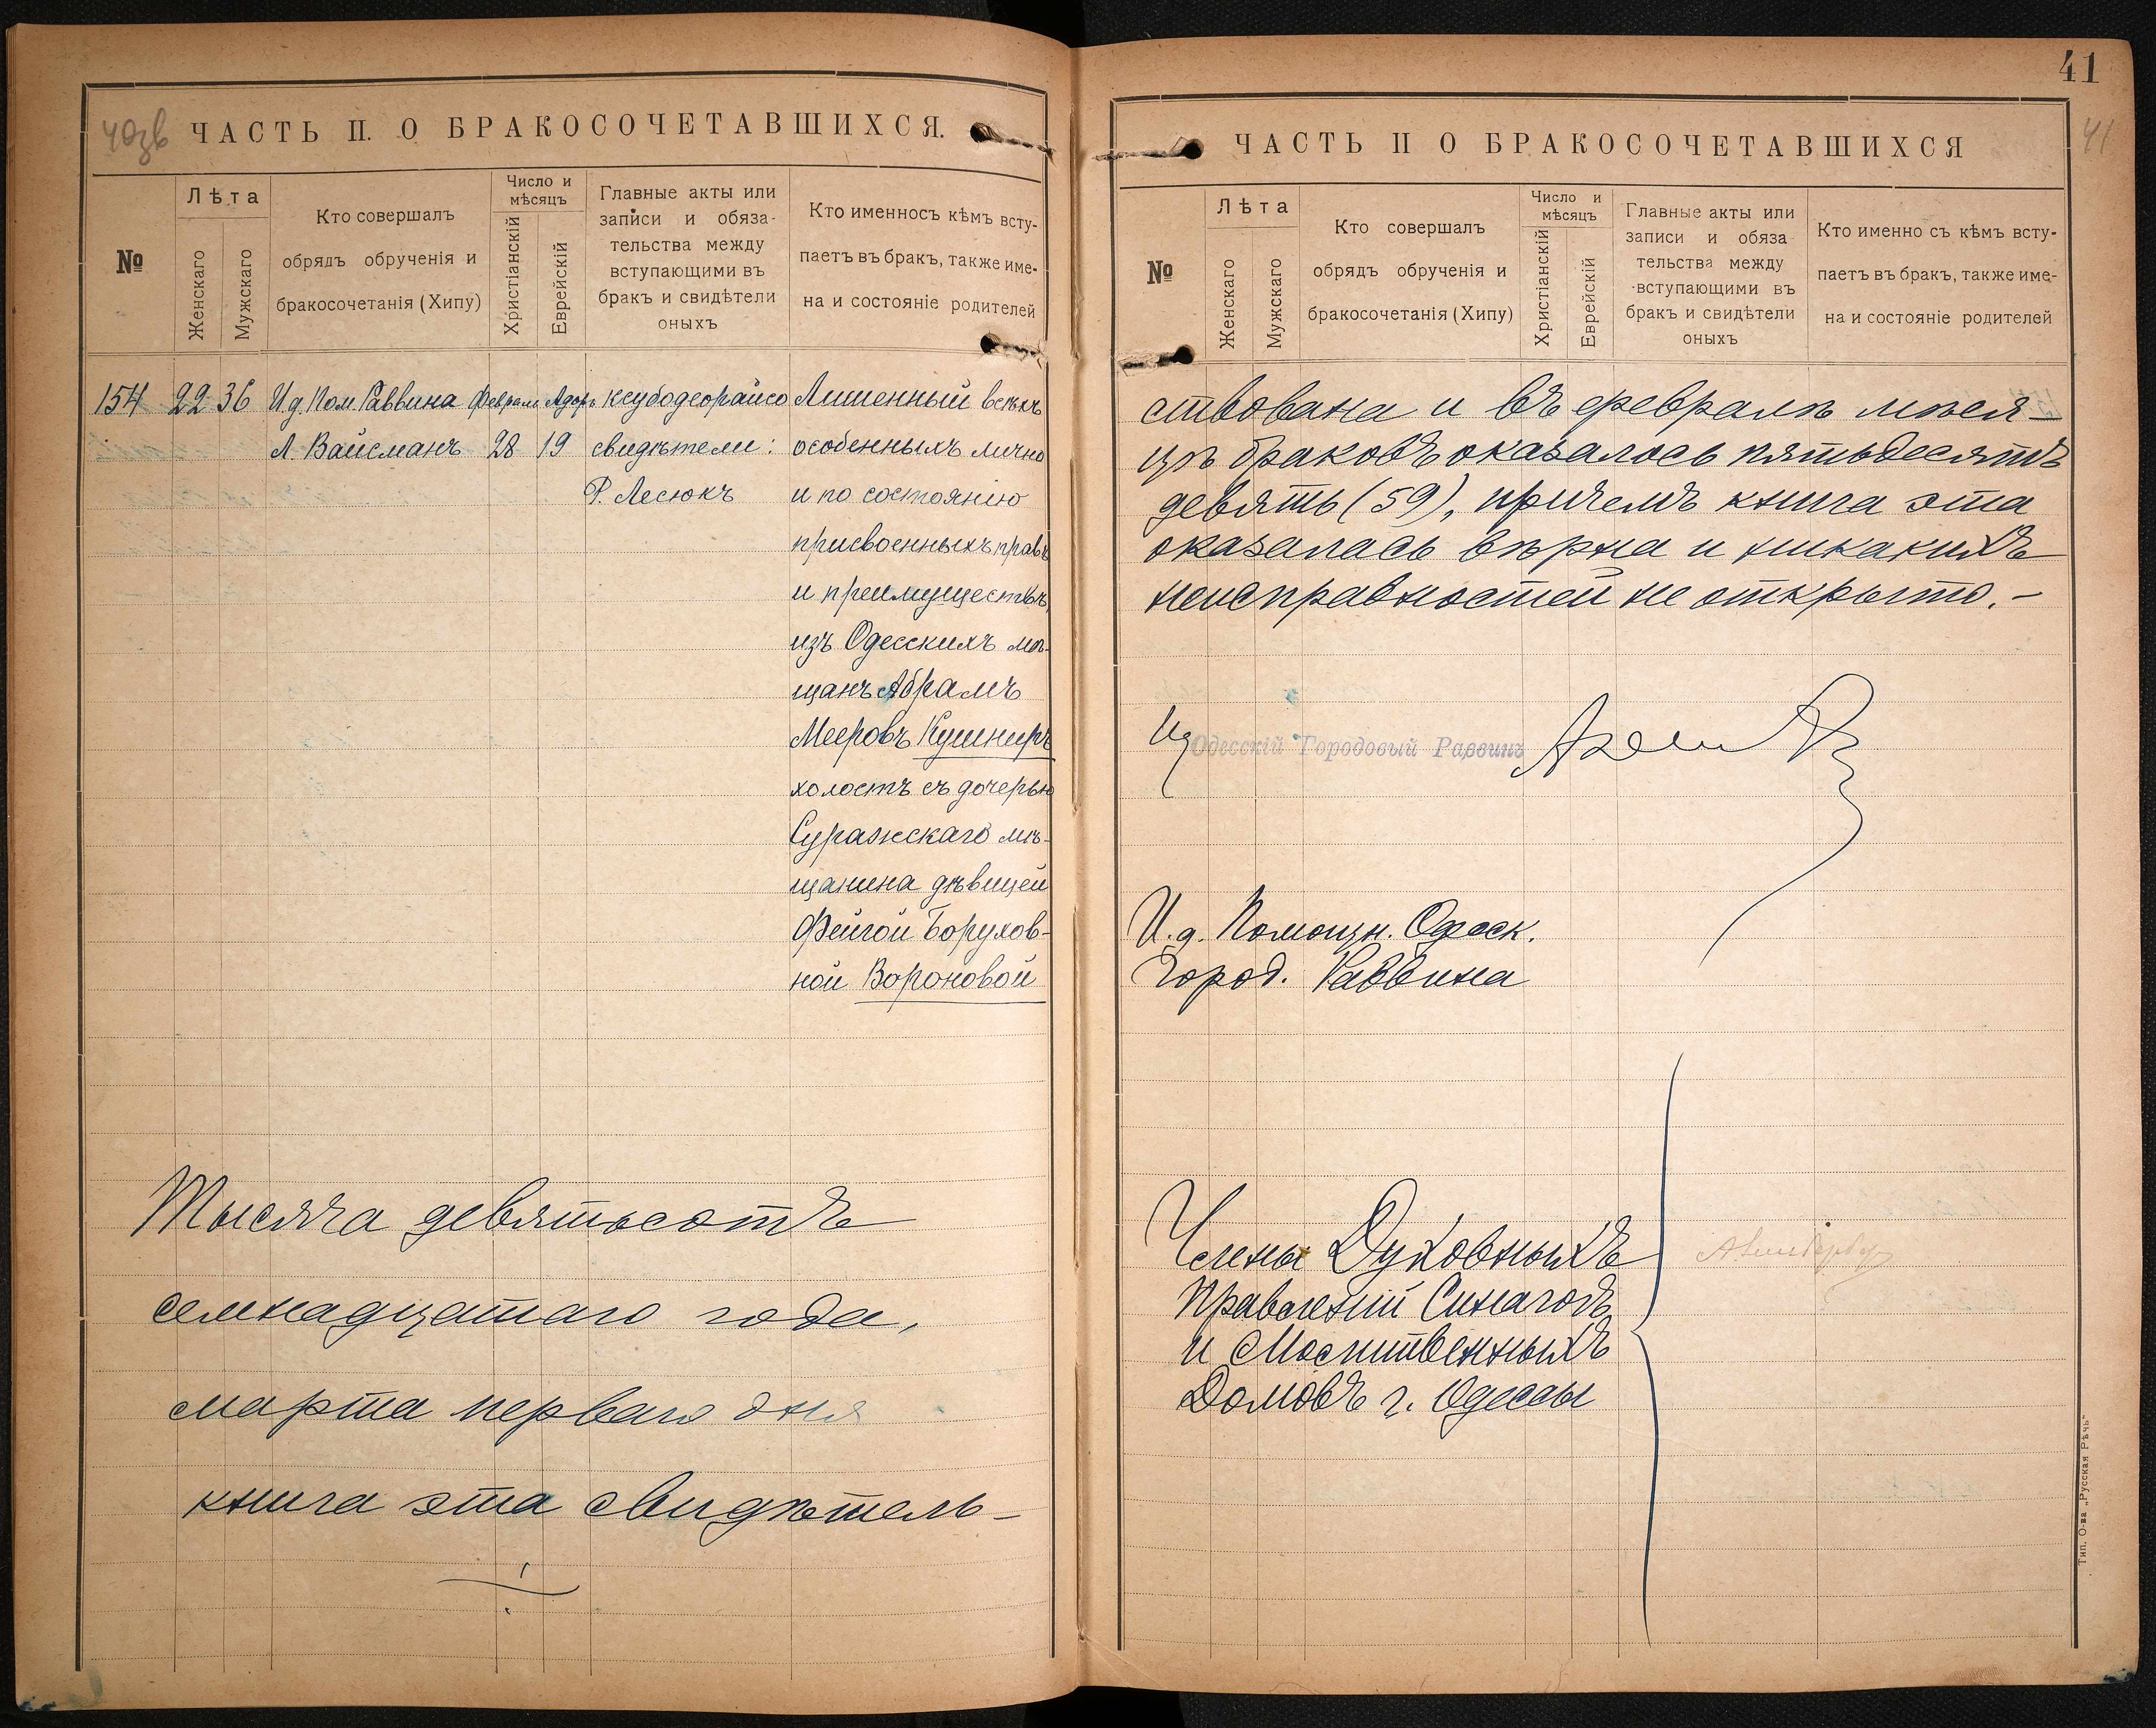 40 зв
ЧАСТЬ II. О БРАКОСОЧЕТАВШИХСЯ.
№
Лѣта
Женскаго
Мужскаго
Кто совершалъ
обрядъ обрученія и
бракосочетанія (Хипу)
Число и
мѣсяцъ
Христіанскій
Еврейскій
Главные акты или
записи и обяза-
тельства между
вступающими въ
бракъ и свидѣтели
оныхъ
Кто именносъ кѣмъ всту-
паетъ въ бракъ, также име-
на и состояніе родителей
154 22 36 И.д. Пом. Раввина Февраля Адоръ ксубодеорайсо Лишенный всѣхъ
Л. Вайсманъ 28 19 свидѣтели: особенныхъ лично
Р. Лесюкъ и по состоянію
присвоенныхъ правъ
и преимуществъ,
изъ Одесскихъ мѣ-
щанъ Абрамъ
Мееровъ Кушниръ
холостъ съ дочерью
Суражскаго мѣ-
щанина дѣвицей
Фейгой Борухов-
ной Вороновой
Тысяча девятьсотъ
семнадцатаго года,
марта перваго дня
книга эта свидѣтель-
41
41
ЧАСТЬ II О БРАКОСОЧЕТАВШИХСЯ
№
Лѣта
Женскаго
Мужскаго
Кто совершалъ
обрядъ обрученія и
бракосочетанія (Хипу)
Число и
мѣсяцъ
Христіанскій
Еврейскій
Главные акты или
записи и обяза
тельства между
вступающими въ
бракъ и свидѣтели
оныхъ
Кто именно съ кѣмъ всту-
паетъ въ бракъ, также име-
на и состояніе родителей
ствована и въ февралѣ мѣся-
цѣ браковъ оказалось пятьдесятъ
девять (59), причемъ книга эта
оказалась вѣрна и никакихъ
неисправностей не открыто.-
Ид Одесскій Городовый Раввинъ
И.д. Помощн. Одесск.
Город. Раввина
Члены Духовныхъ
Правленій Синагогъ
и Молитвенныхъ
Домовъ г. Одессы
Тип. О-ва „Русская Рѣчь“